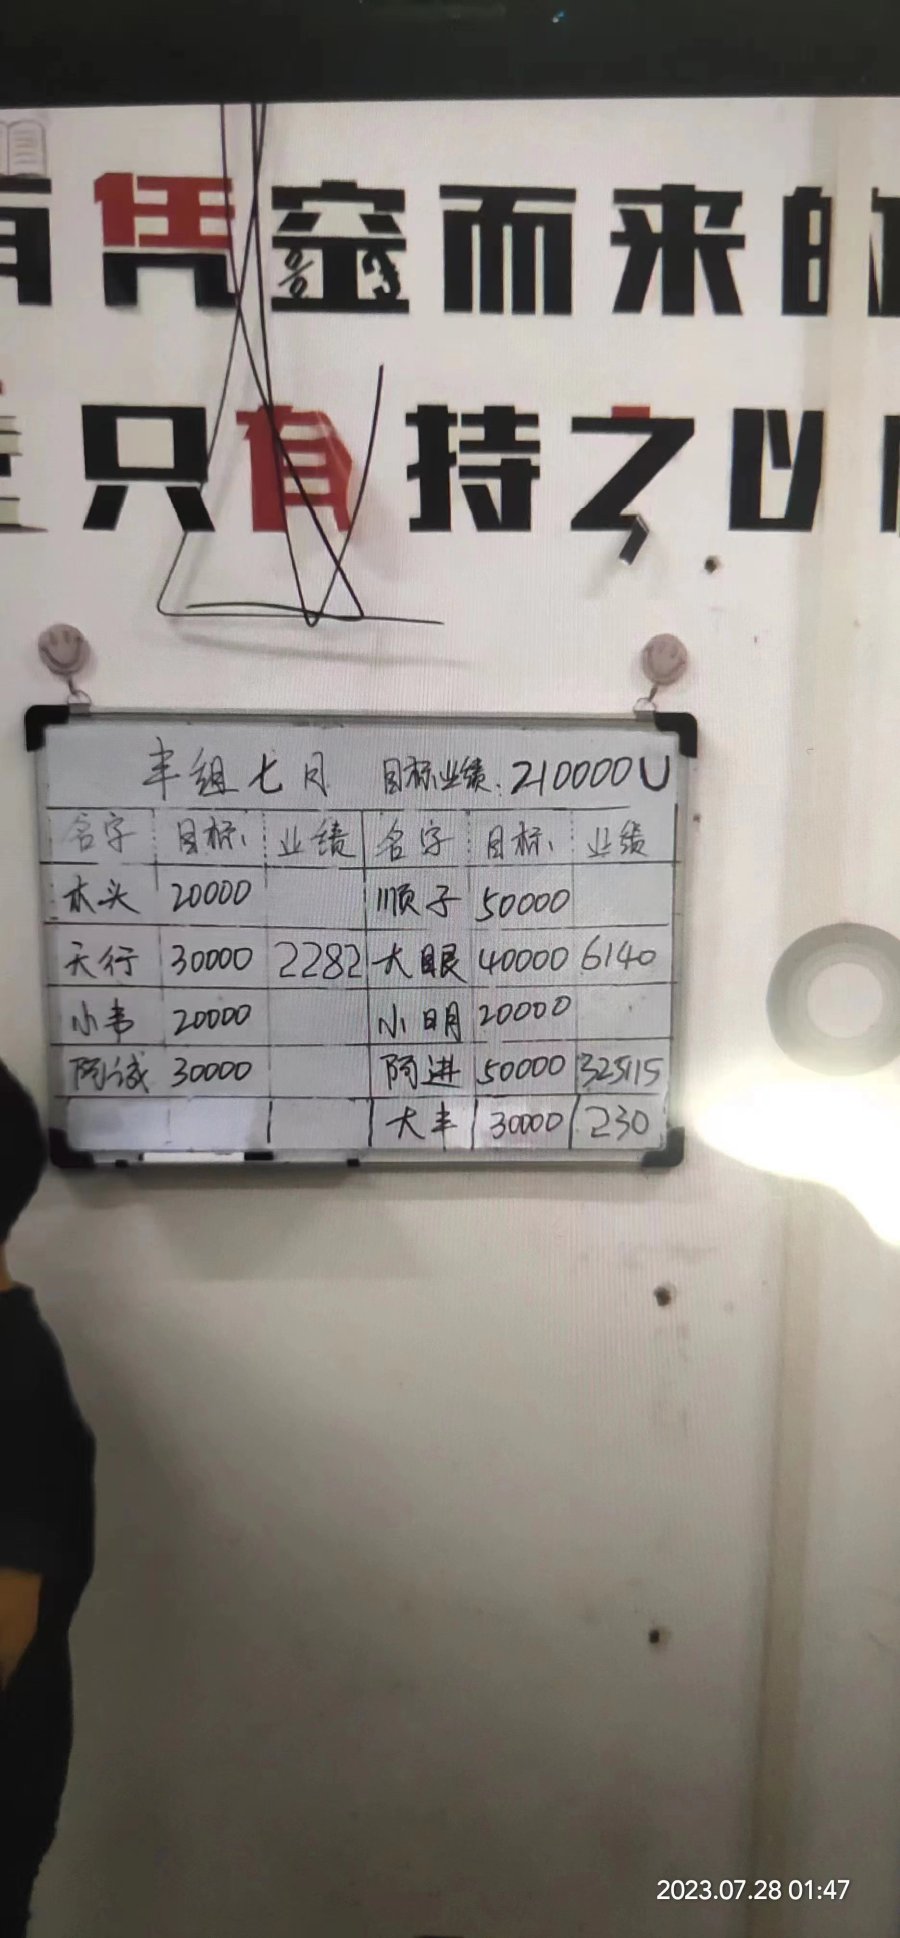 凭空而来的
只有持之以
丰组七月 目标业绩:210000U
名字 目标: 业绩 名字 目标: 业绩
木头 20000 顺子 50000
天行 30000 2282 大眼 40000 6140
小韦 20000 小明 20000
阿诚 30000 阿进 50000 32515
大丰 30000 230
2023.07.28 01:47